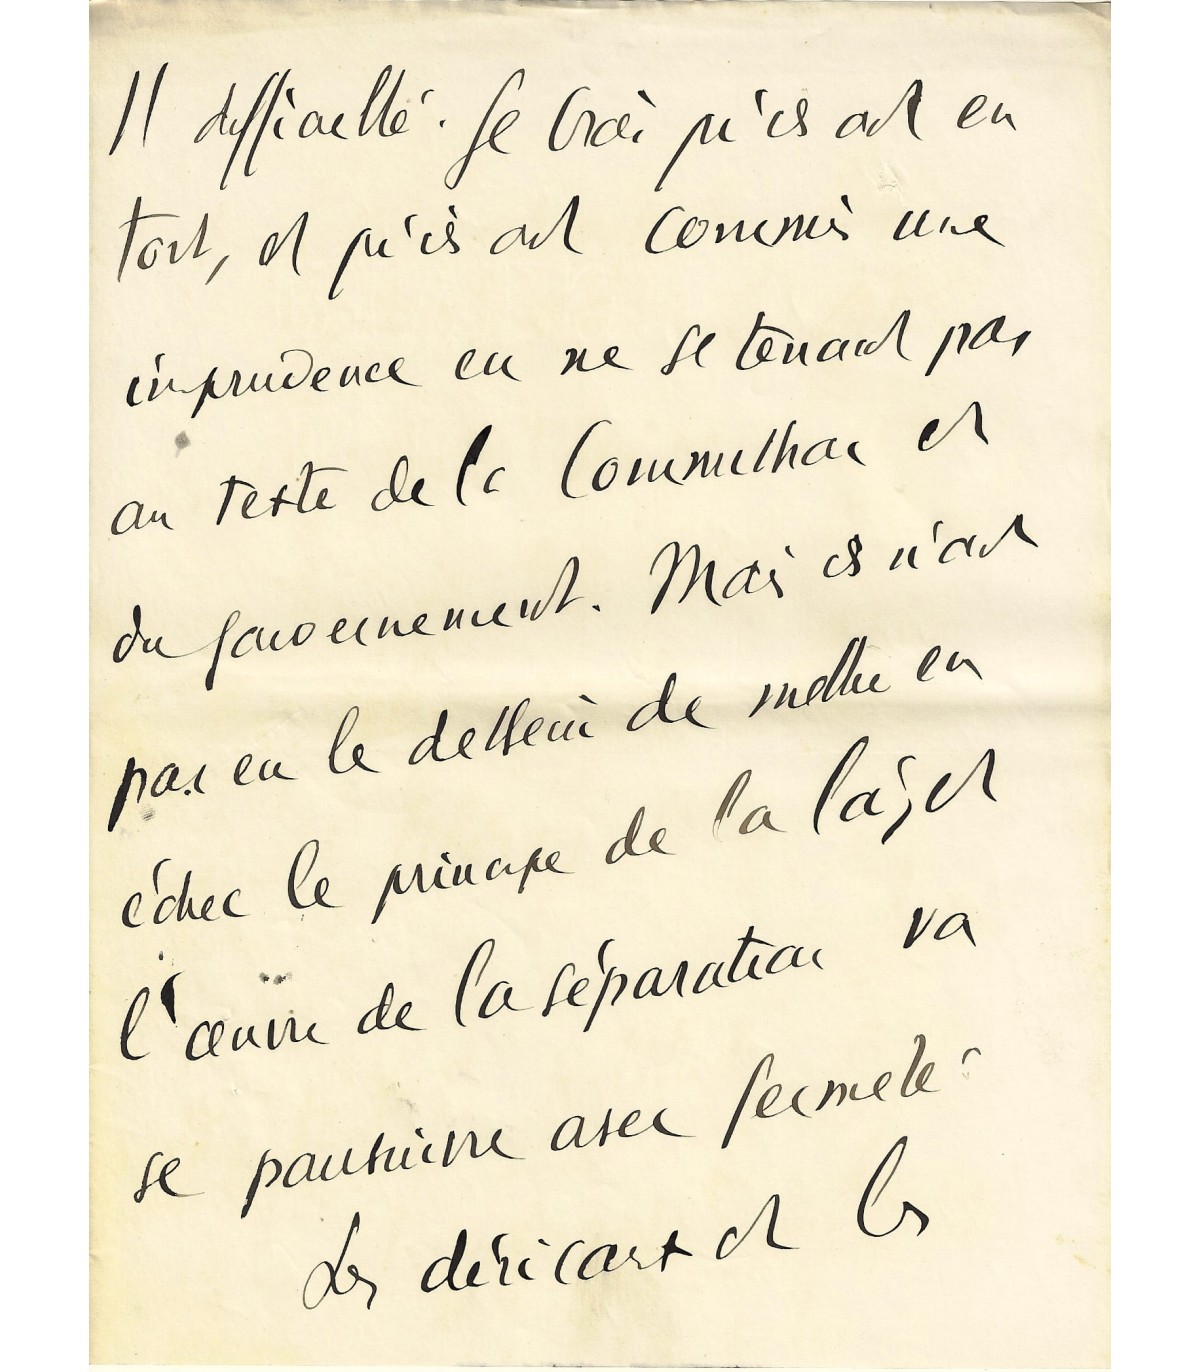 11 difficulté. Je crois qu'ils ont eu
tort, et qu'ils ont commis une
imprudence en ne se tenant pas
au texte de la Commission et
du gouvernement. Mais ils n'ont
pas eu le dessein de mettre en
échec le principe de la loi, et
l'œuvre de la séparation va
se poursuivre avec fermeté.
Les cléricaux et les